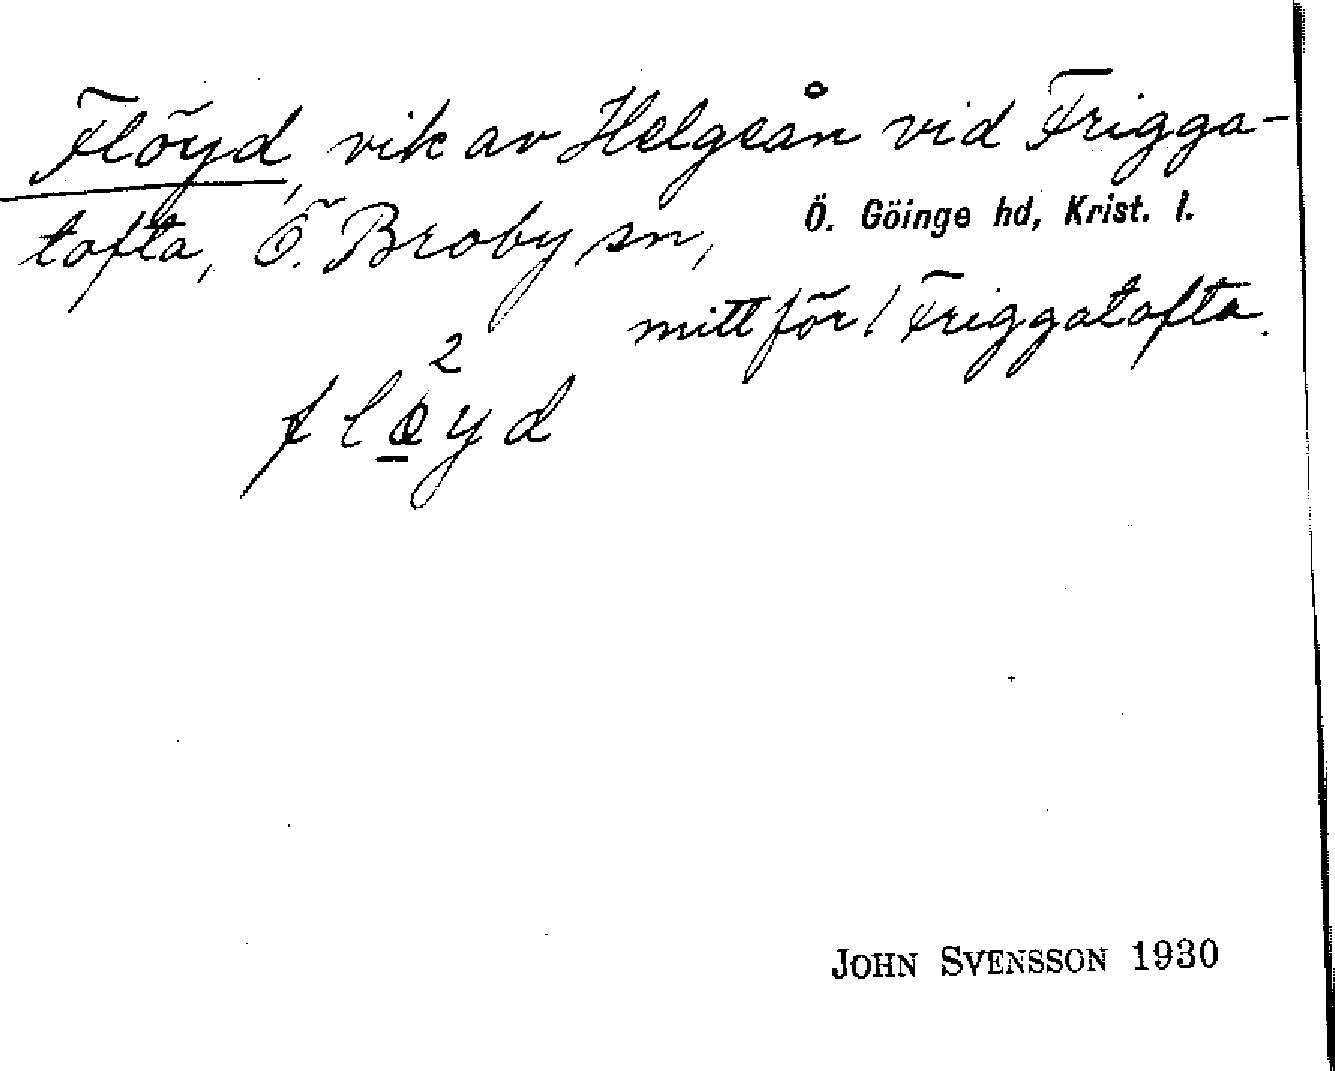 Flöyd, vik av Helgeån vid Frigga-
tofta, Ö. Broby sn, Ö. Göinge hd, Krist. l.
mitt för / Friggatofta.
2
fløyd
JOHN SVENSSON 1930